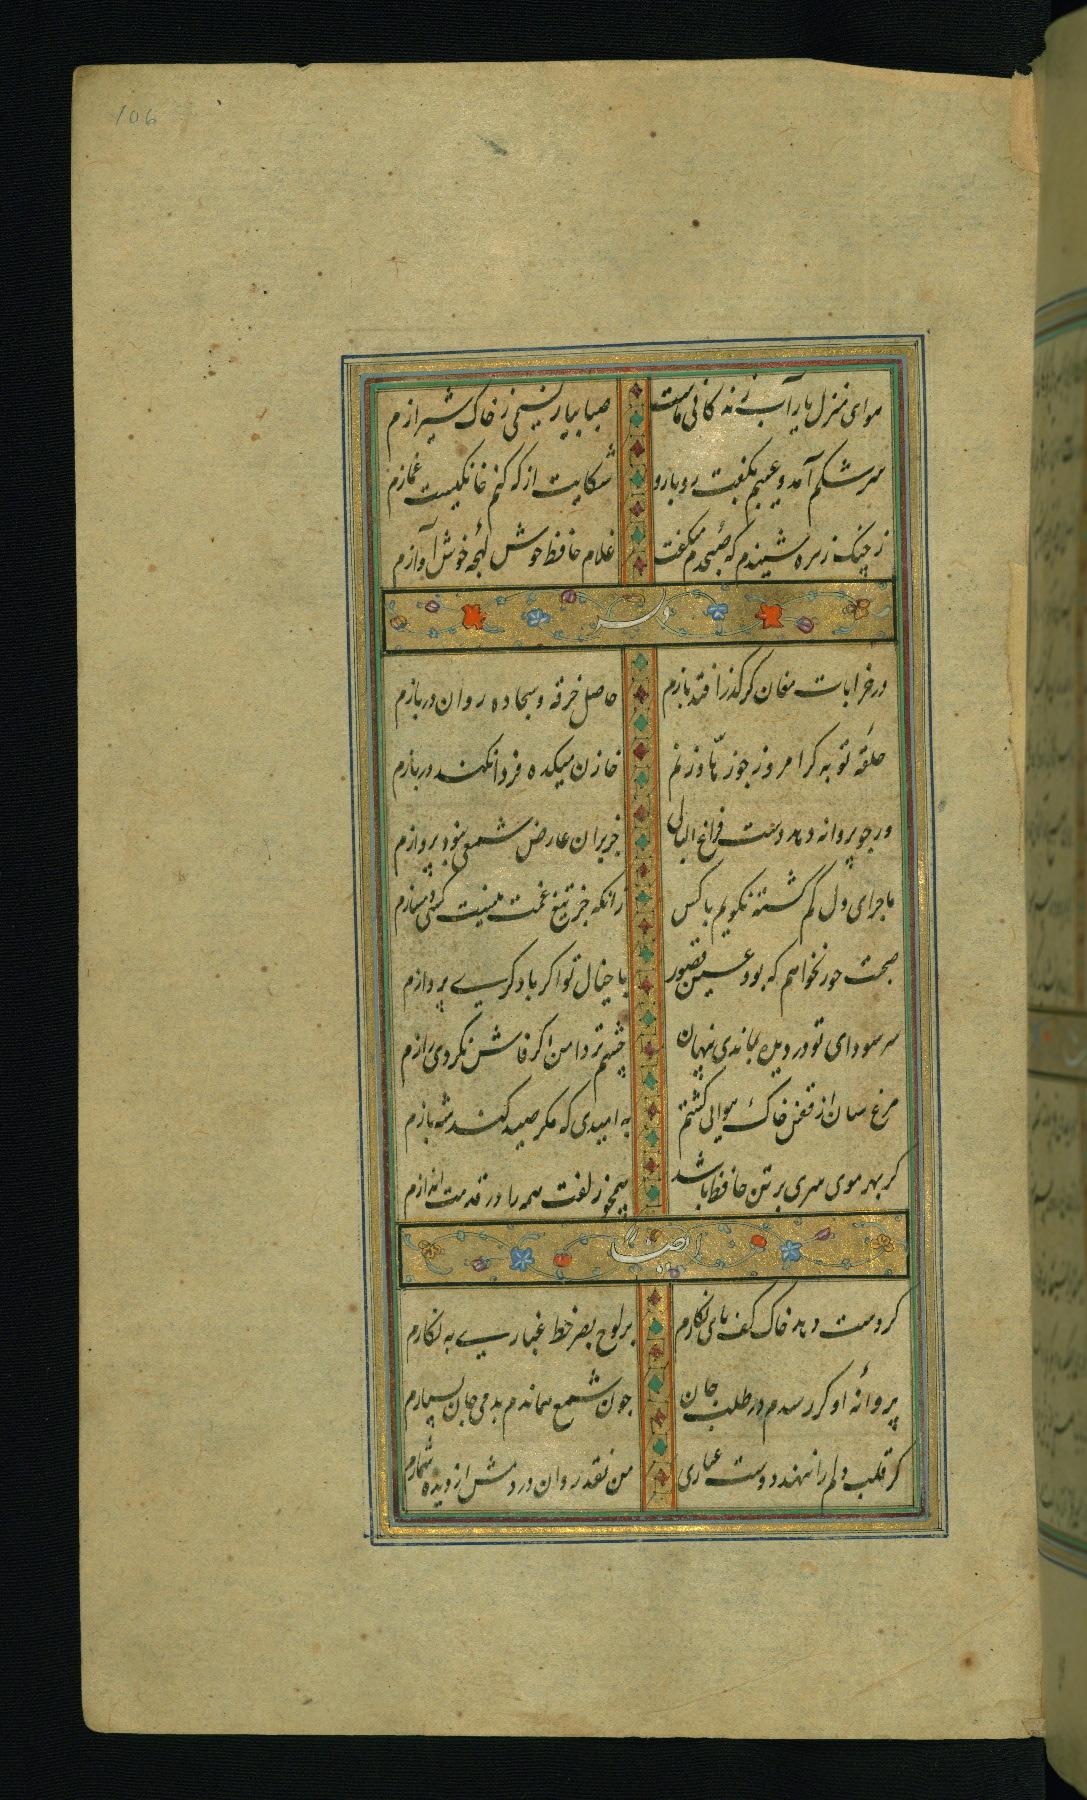 106
هوای منزل یار آب زندگانی ماست صبا بیار نسیمی ز خاک شیرازم
سرشکم آمد و عیبم بگفت رو بارو شکایت از که کنم خانگیست غمازم
ز چنگ زهره شنیدم که صبحدم میگفت غلام حافظ خوش لهجهٔ خوش آوازم
در خرابات مغان کر گذر افتد بازم حاصل خرقه و سجاده روان در بازم
حلقهٔ توبه گر امروز چو زهّاد زنم خازن میکده فردا نکند در بازم
ور چو پروانه دهد دست فراغ البالی جز بران عارض شمعی نبود پروازم
ماجرای دل کم گشته نگویم با کس زانکه جز تیغ غمت نیست کسی دمسازم
صحبت حور نخواهم که بود عین قصور با خیال تو اگر با دگری پردازم
سر سودای تو در دیده بماندی پنهان چشم تر دامن اگر فاش نگردی رازم
مرغ سان از قفس خاک هوایی گشتم به امیدی که مگر صید کند شهبازم
گر بهر موی سری بر تن حافظ باشد همچو زلفت همه را در قدمت اندازم
ایضا
گر دست دهد خاک کف پای نگارم بر لوح بصر خط غباری به نگارم
پروانهٔ او گر رسدم در طلب جان چون شمع هماندم بدمی جان بسپارم
گر قلب دلم را ننهد دوست عیاری من نقد روان در دمش از دیده شمارم